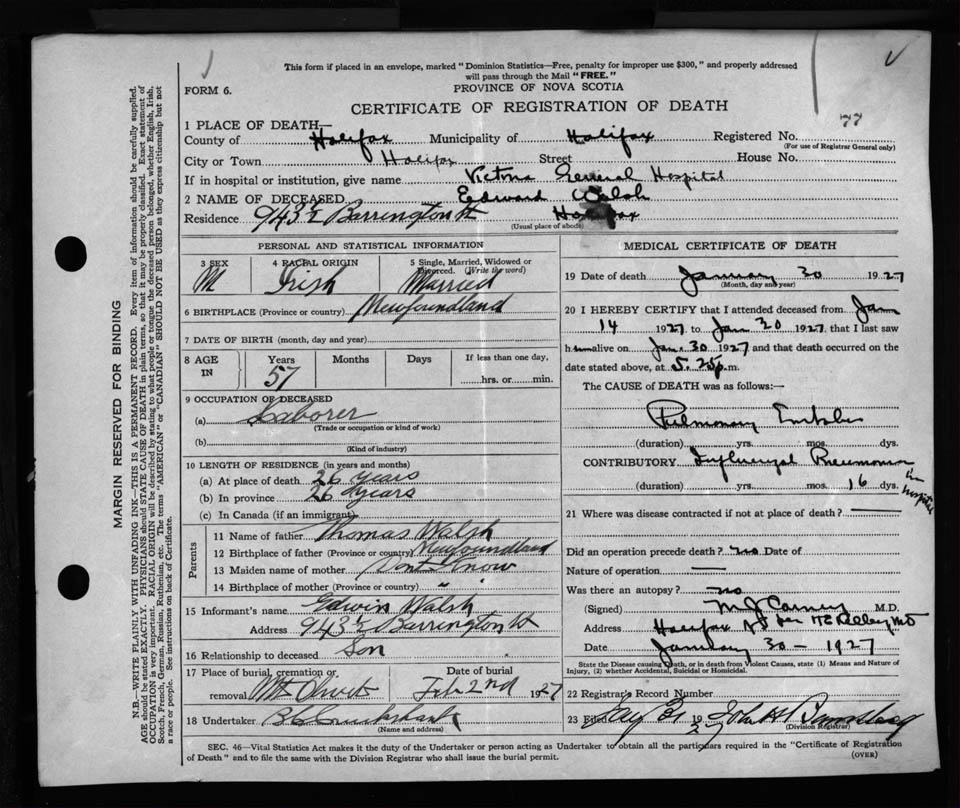 This form if placed in an envelope, marked "Dominion Statistics—Free, penalty for improper use $300," and properly addressed
will pass through the Mail "FREE."
FORM 6.
PROVINCE OF NOVA SCOTIA
CERTIFICATE OF REGISTRATION OF DEATH
1 PLACE OF DEATH—
County of Halifax Municipality of Halifax Registered No. 77
(For use of Registrar General only)
City or Town Halifax Street House No.
If in hospital or institution, give name Victoria General Hospital
2 NAME OF DECEASED Edward Walsh
Residence 943½ Barrington St Halifax
(Usual place of abode)
PERSONAL AND STATISTICAL INFORMATION
3 SEX 4 RACIAL ORIGIN 5 Single, Married, Widowed or Divorced. (Write the word)
M Irish Married
6 BIRTHPLACE (Province or country) Newfoundland
7 DATE OF BIRTH (month, day and year)
8 AGE IN Years Months Days If less than one day,
57 hrs. or min.
9 OCCUPATION OF DECEASED
(a) Laborer
(Trade or occupation or kind of work)
(b)
(Kind of industry)
10 LENGTH OF RESIDENCE (in years and months)
(a) At place of death 26 years
(b) In province 26 years
(c) In Canada (if an immigrant)
Parents
11 Name of father Thomas Walsh
12 Birthplace of father (Province or country) Newfoundland
13 Maiden name of mother Dont Know
14 Birthplace of mother (Province or country) " "
15 Informant's name Edwin Walsh
Address 943½ Barrington St
16 Relationship to deceased Son
17 Place of burial, cremation or removal Mt Olivet
Date of burial Feb 2nd 1927
18 Undertaker
(Name and address)
MEDICAL CERTIFICATE OF DEATH
19 Date of death January 30 1927
(Month, day and year)
20 I HEREBY CERTIFY that I attended deceased from Jan
14 1927 to Jan 30 1927, that I last saw
him alive on Jan. 30 1927 and that death occurred on
date stated above, at 5.25 p.m.
The CAUSE OF DEATH was as follows:—
Pulmonary
(duration) yrs. mos. dys.
CONTRIBUTORY Influenzal Pneumonia
(duration) yrs. mos. 16 dys. in hospital
21 Where was disease contracted if not at place of death? —
Did an operation precede death? no Date of
Nature of operation —
Was there an autopsy? no
(Signed) M J Carney M.D.
Address Halifax NS
Date January 30 – 1927
State the Disease causing Death, or in death from Violent Causes, state (1) Means and Nature of
Injury, (2) whether Accidental, Suicidal or Homicidal.
22 Registrar's Record Number
23 Filed 1927 John
(Division Registrar)
SEC. 46—Vital Statistics Act makes it the duty of the Undertaker or person acting as Undertaker to obtain all the particulars required in the "Certificate of Registration
of Death" and to file the same with the Division Registrar who shall issue the burial permit.
(OVER)
MARGIN RESERVED FOR BINDING
N.B.—WRITE PLAINLY WITH UNFADING INK—THIS IS A PERMANENT RECORD. Every item of information should be carefully supplied.
AGE should be stated EXACTLY. PHYSICIANS should STATE CAUSE OF DEATH in plain terms, so that it may be properly classified. Exact statement of
OCCUPATION is very important. RACIAL ORIGIN will be described by stating to what people or tongue the deceased person belonged, whether English, Irish,
Scotch, French, German, Russian, Ruthenian, etc. The terms "AMERICAN" or "CANADIAN" SHOULD NOT BE USED as they express citizenship but not
a race or people. See instructions on back of Certificate.